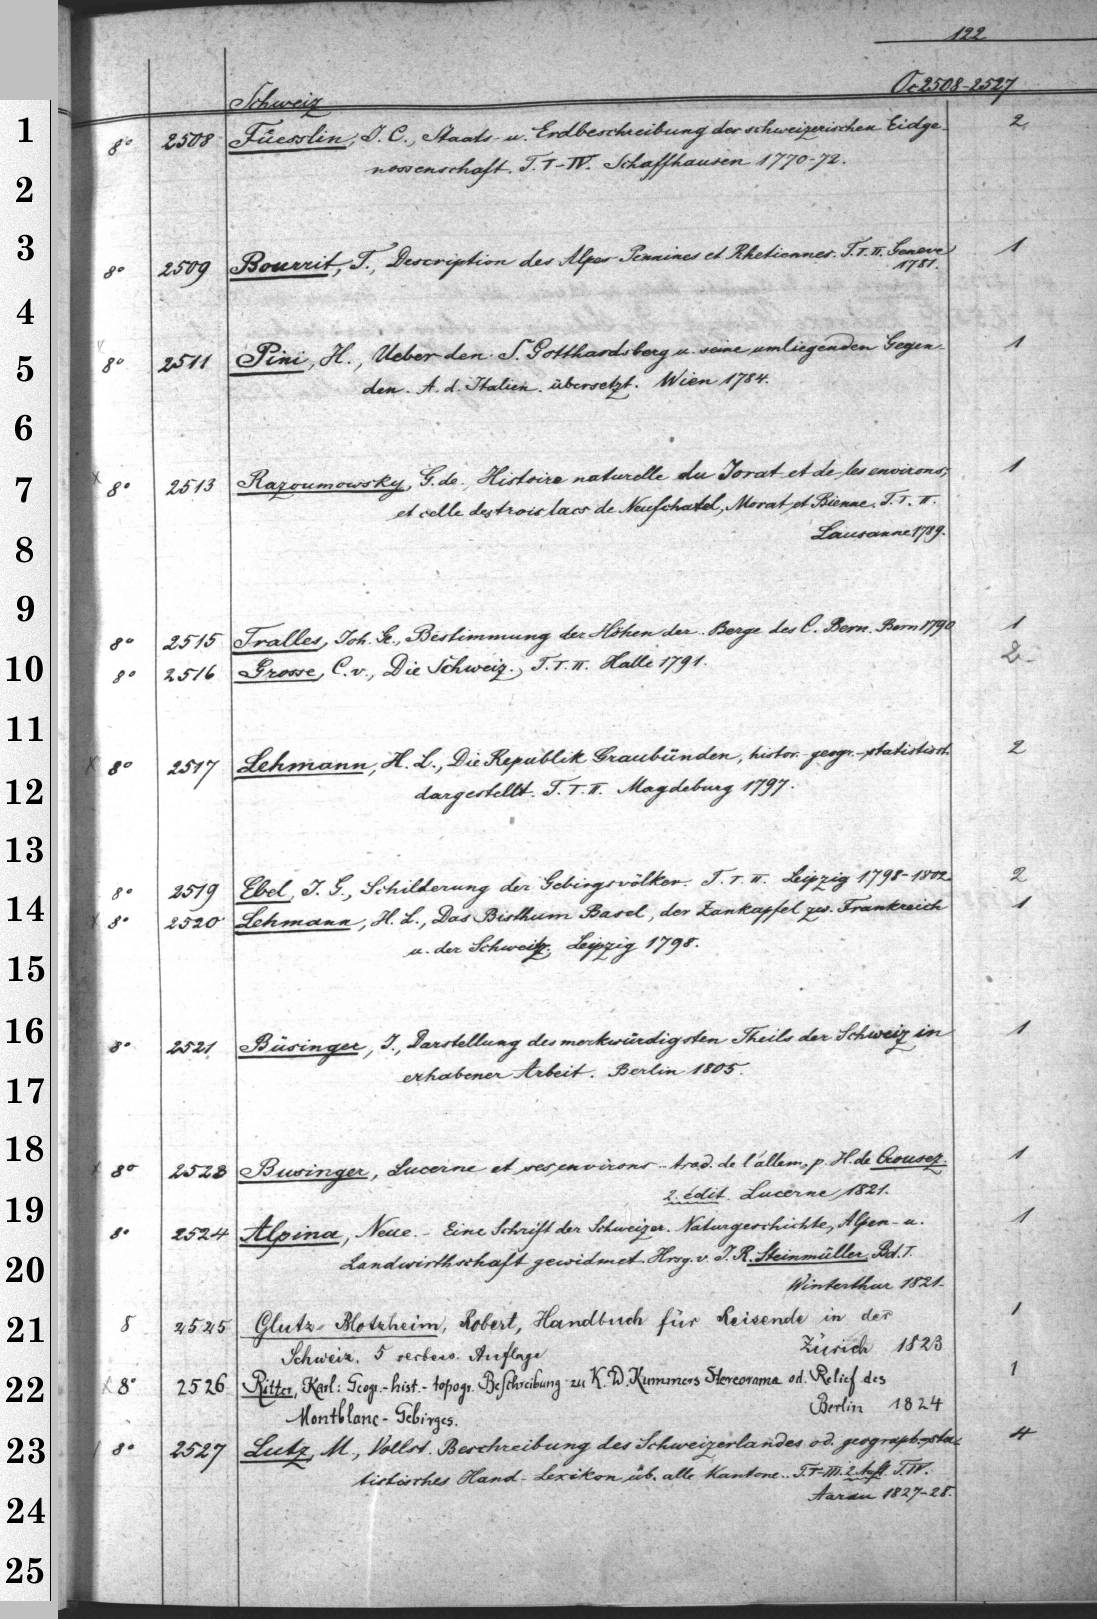 122
Oc 2508-2527
Schweiz
1 8° 2508 Füesslin, J. C., Staats- u. Erdbeschreibung der schweizerischen Eidge- 2
2 nossenschaft. T. I-IV. Schaffhausen 1770-72.
3 8° 2509 Bourrit, T., Description des Alpes Pennines et Rhetiennes. T. I. II. Geneve 1
1781.
4
5 8° 2511 Pini, H., Ueber den S. Gotthardsberg u. seine umliegenden Gegen- 1
den. A. d. Italien. übersetzt. Wien 1784.
6
7 x 8° 2513 Razoumowsky, G. de, Histoire naturelle du Jorat et de les environs; 1
et celle des trois lacs de Neufchatel, Morat et Bienne. T. I. II.
8 Lausanne 1789.
9
8° 2515 Tralles, Joh. Ge., Bestimmung der Höhen der Berge des C. Bern. Bern 1790 1
10 8° 2516 Grosse, C. v., Die Schweiz., T. I. II. Halle 1791. 2
11
x 8° 2517 Lehmann, H. L., Die Republik Graubünden, histor.-geogr.-statistisch 2
12 dargestellt. T. I. II. Magdeburg 1797.
13
8° 2519 Ebel, J. G., Schilderung der Gebirgsvölker. T. I. II. Leipzig 1798-1802 2
14 x 8° 2520 Lehmann, H. L., Das Bisthum Basel, der Zankapfel zw. Frankreich 1
u. der Schweitz. Leipzig 1798.
15
16 8° 2521 Büsinger, J., Darstellung des merkwürdigsten Theils der Schweiz in 1
17 erhabener Arbeit. Berlin 1805.
18 x 8° 2523 Businger, Lucerne et ses environs - trad. de l'allem. p. H. de Crousez. 1
19 2. édit. Lucerne, 1821.
8° 2524 Alpina, Neue. - Eine Schrift der Schweizer. Naturgeschichte, Alpen- u. 1
20 Landwirthschaft gewidmet. Hrsg. v. J. R. Steinmüller. Bd. I.
Winterthur 1821.
21 8 2525 Glutz-Blotzheim, Robert, Handbuch für Reisende in der 1
Schweiz. 5 verbess. Auflage Zürich 1823
22 x 8° 2526 Ritter, Karl: Geogr.-hist.-topogr. Beschreibung zu K. W. Kummers Stereorama od. Relief des 1
Montblanc-Gebirges. Berlin 1824
23 8° 2527 Lutz, M., Vollst. Beschreibung des Schweizerlandes od. geograph.-sta- 4
tistisches Hand-Lexikon üb. alle Kantone. T. I-III. 2. Aufl. T. IV.
24 Aarau 1827-28.
25